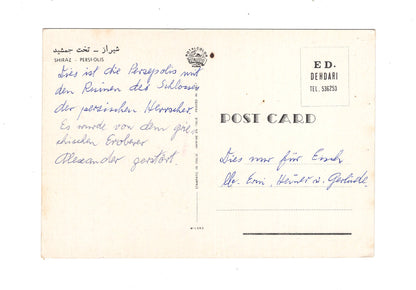 شیراز - تخت جمشید
SHIRAZ - PERSPOLIS
Dies ist die Persepolis mit
den Ruinen des Schlosses
der persischen Herrscher.
Es wurde von dem grie-
chischen Eroberer
Alexander zerstört.
ED.
DENDARI
TEL. 536753
POST CARD
Dies nur für Euch
lb. Erni, Heiner u. Gerlinde.